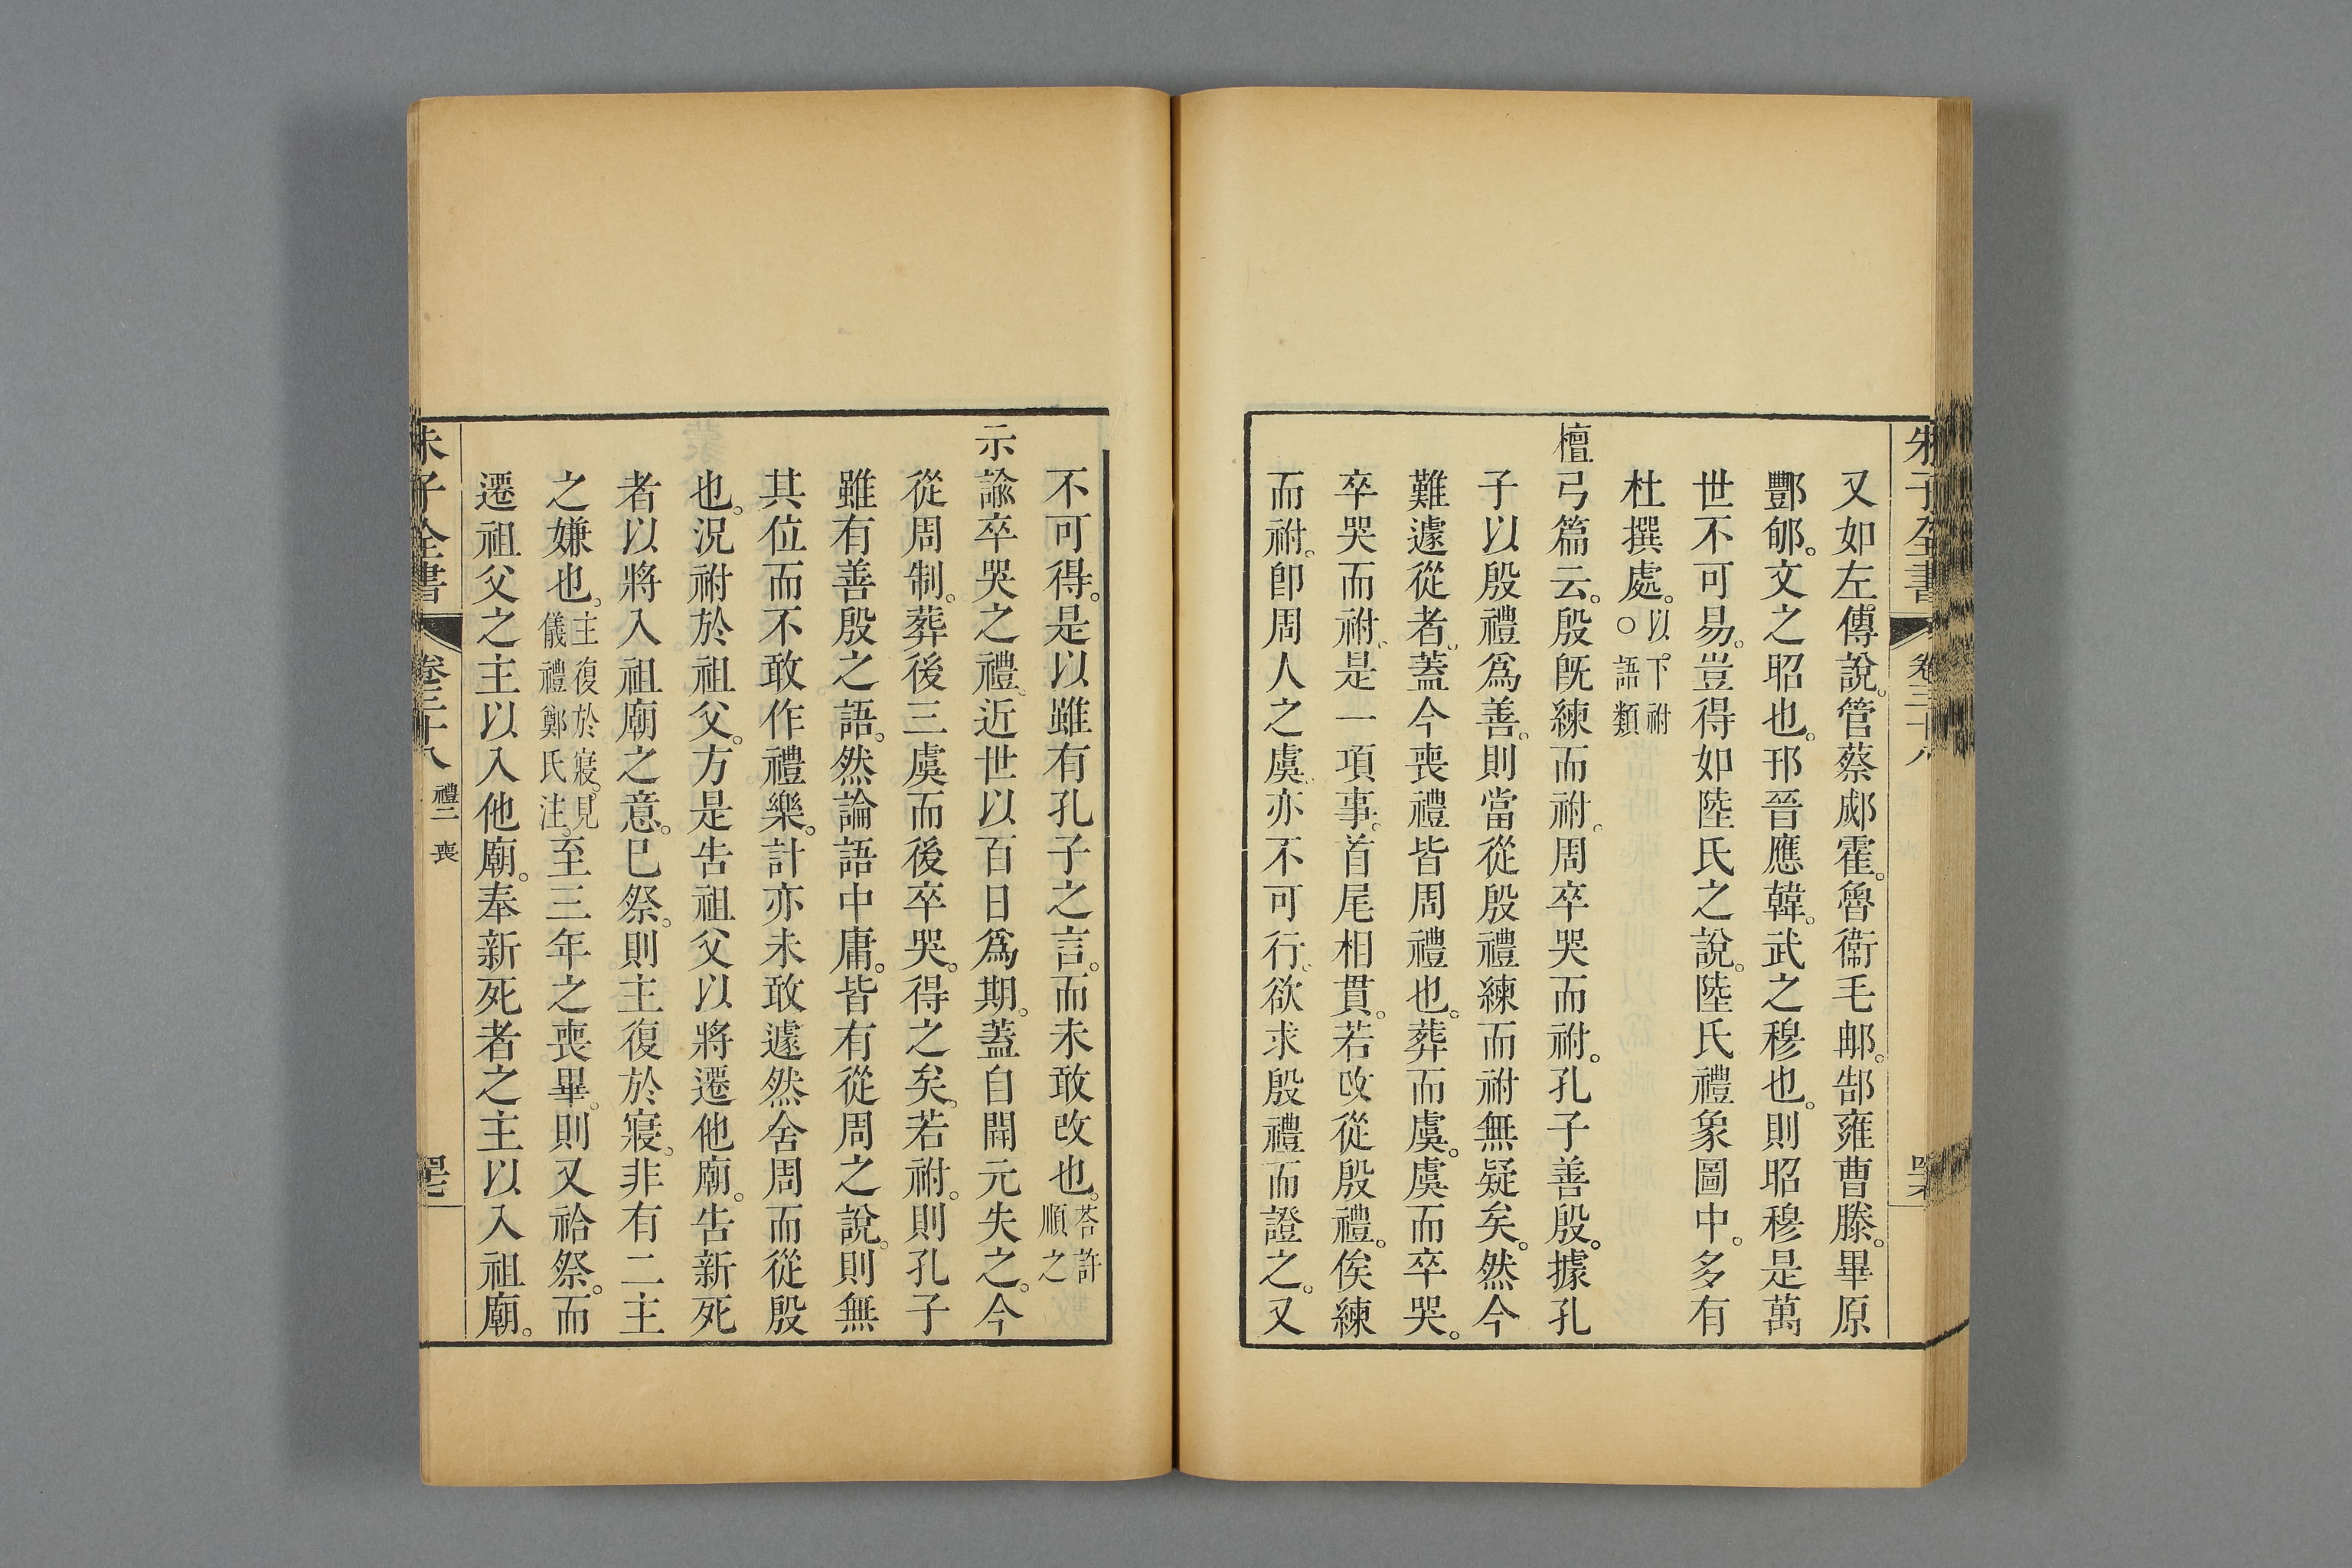 朱子全書 卷三十八
又如左傳說。管蔡郕霍。魯衞毛耼。郜雍曹滕。畢原
酆郇。文之昭也。邘晉應韓。武之穆也。則昭穆是萬
世不可易。豈得如陸氏之說。陸氏禮象圖中。多有
杜撰處。以下祔○語類
檀弓篇云。殷旣練而祔。周卒哭而祔。孔子善殷。據孔
子以殷禮爲善。則當從殷禮練而祔無疑矣。然今
難遽從者。蓋今喪禮皆周禮也。葬而虞。虞而卒哭。
卒哭而祔。是一項事。首尾相貫。若改從殷禮。俟練
而祔。卽周人之虞。亦不可行。欲求殷禮而證之。又
不可得。是以雖有孔子之言。而未敢改也。荅許順之
示諭卒哭之禮。近世以百日爲期。蓋自開元失之。今
從周制。葬後三虞而後卒哭。得之矣。若祔。則孔子
雖有善殷之語。然論語中庸。皆有從周之說。則無
其位而不敢作禮樂。計亦未敢遽然舍周而從殷
也。況祔於祖父。方是告祖父以將遷他廟。告新死
者以將入祖廟之意。已祭。則主復於寢。非有二主
之嫌也。主復於寢。見儀禮鄭氏注。至三年之喪畢。則又祫祭。而
遷祖父之主以入他廟。奉新死者之主以入祖廟。
朱子全書 卷三十八 禮二 喪 四十七